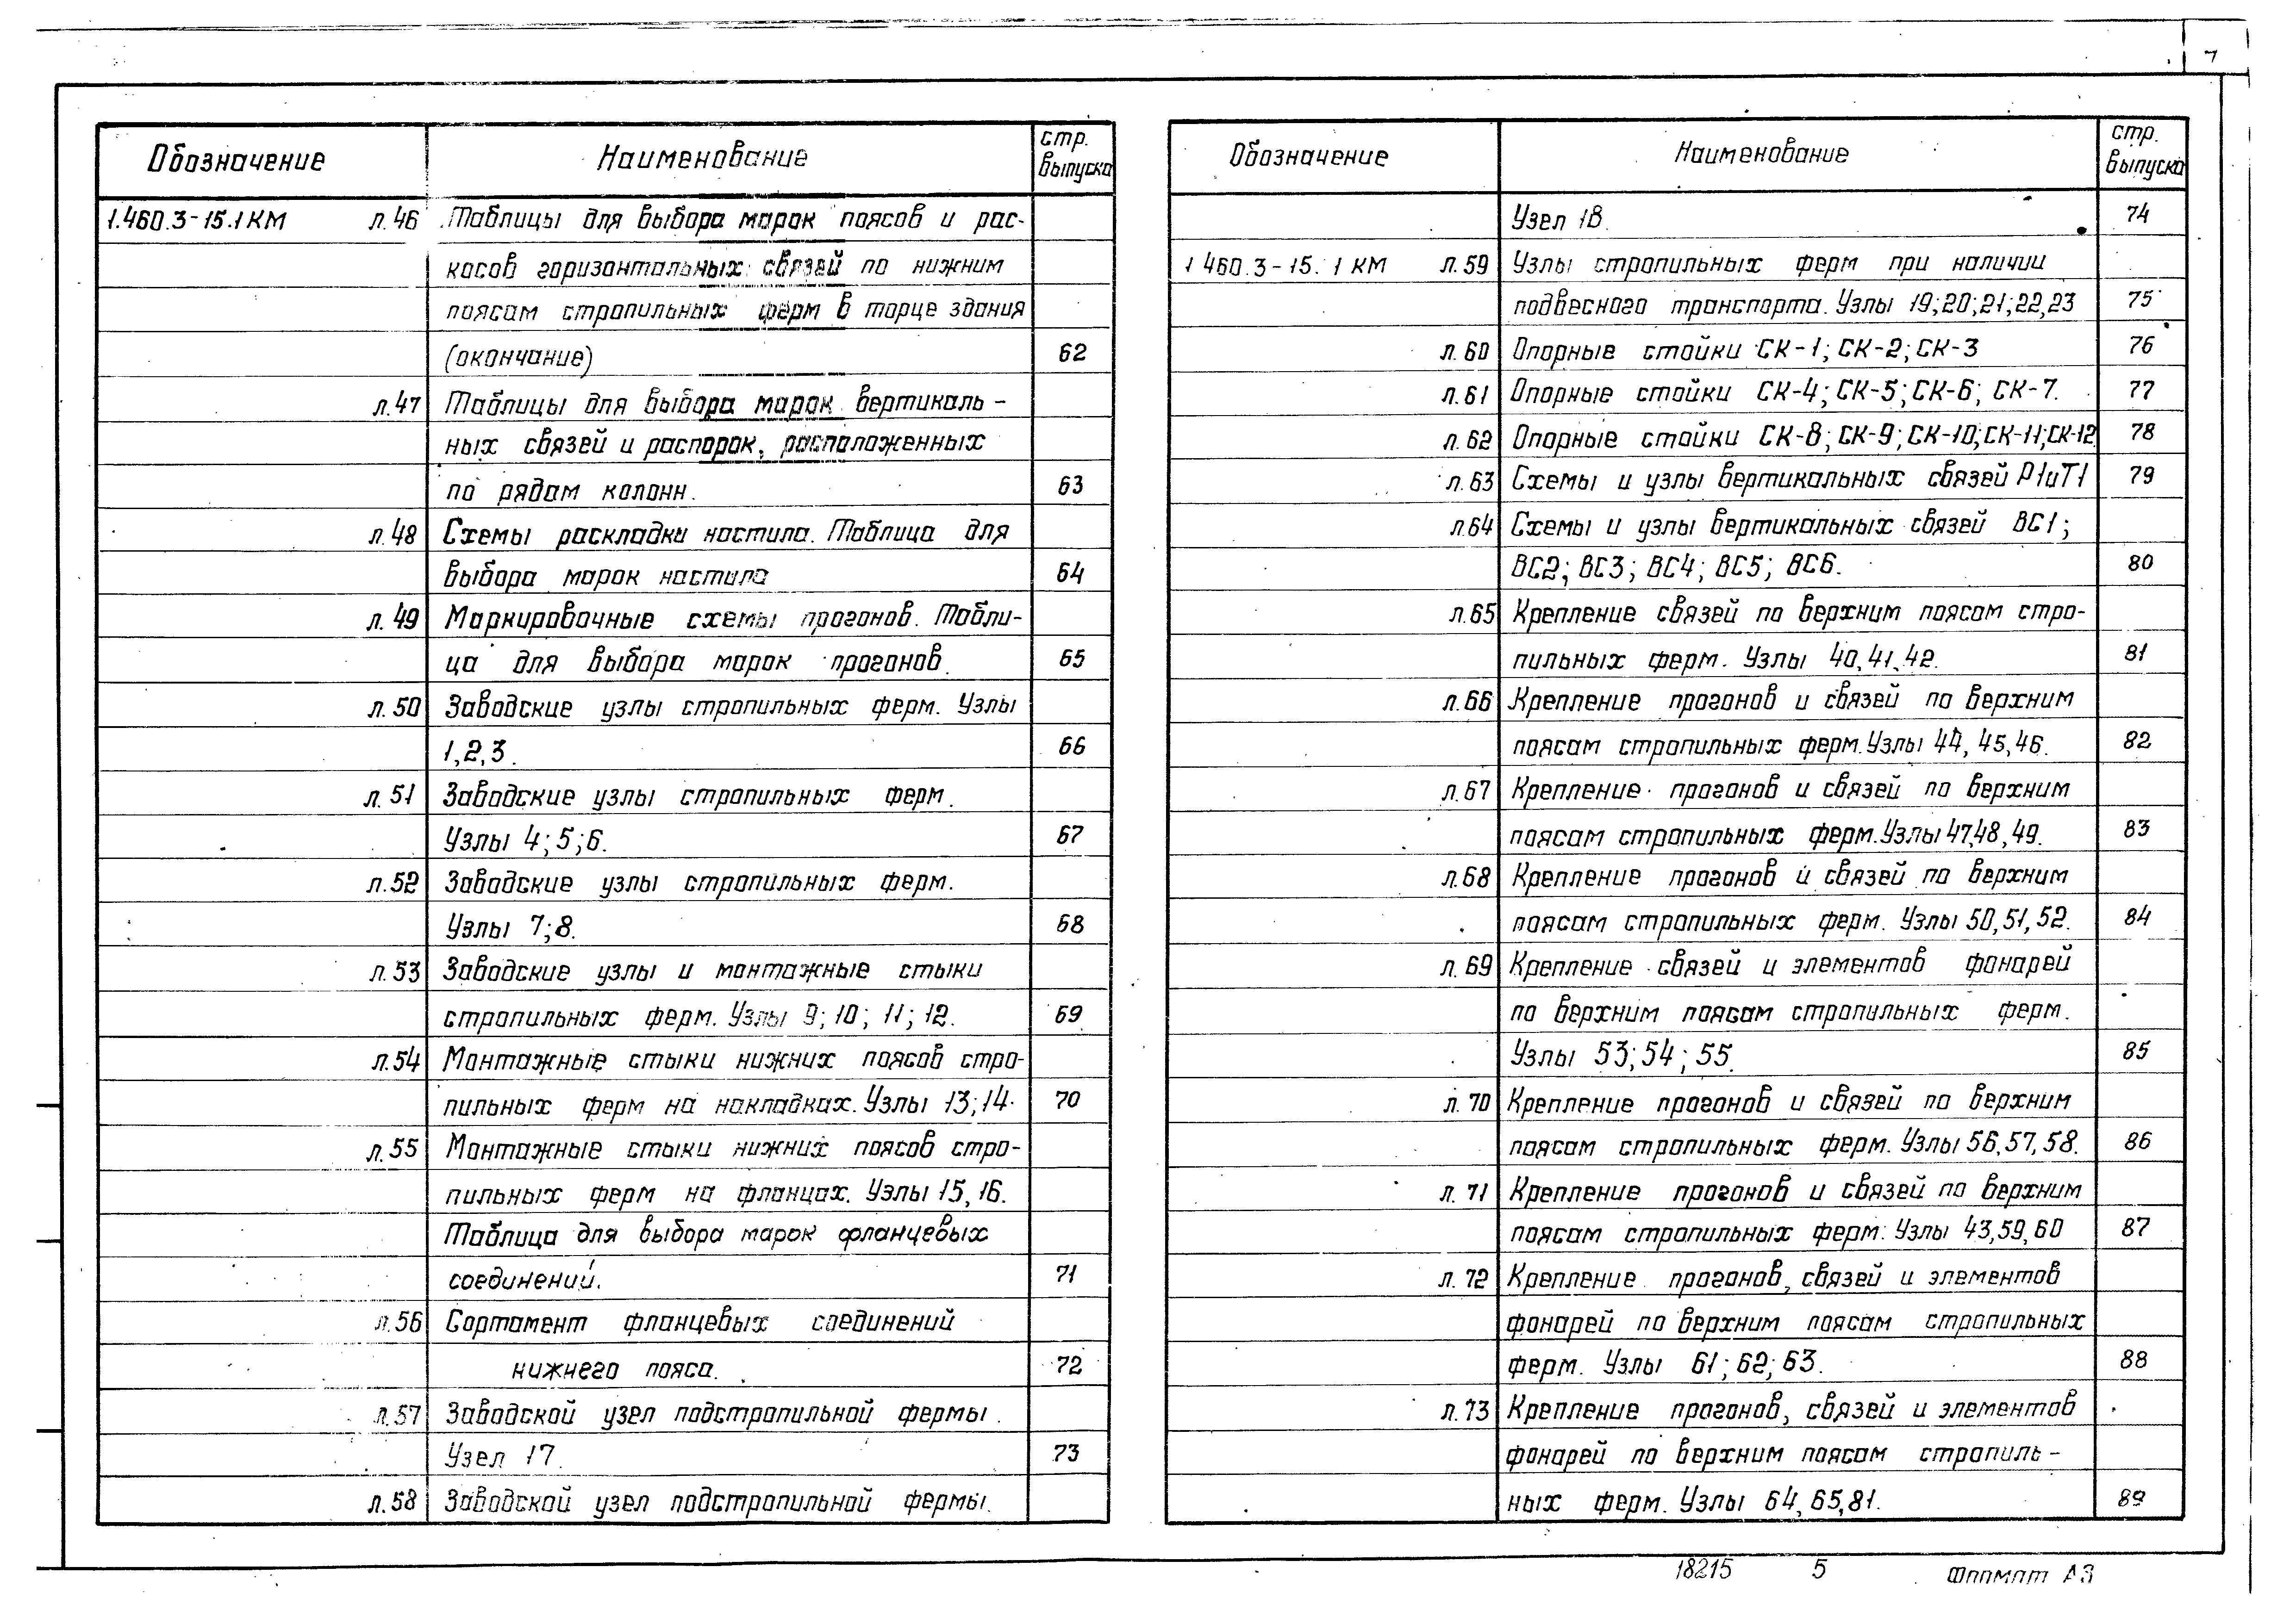 7
Обозначение Наименование стр. выпуска
1.460.3-15.1 КМ л.46 Таблицы для выбора марок поясов и рас-
косов горизонтальных связей по нижним
поясам стропильных ферм в торце здания
(окончание) 62
л.47 Таблицы для выбора марок вертикаль-
ных связей и распорок, расположенных
по рядам колонн. 63
л.48 Схемы раскладки настила. Таблица для
выбора марок настила 64
л.49 Маркировочные схемы прогонов. Табли-
ца для выбора марок прогонов. 65
л.50 Заводские узлы стропильных ферм. Узлы
1,2,3. 66
л.51 Заводские узлы стропильных ферм.
Узлы 4;5;6. 67
л.52 Заводские узлы стропильных ферм.
Узлы 7;8. 68
л.53 Заводские узлы и монтажные стыки
стропильных ферм. Узлы 9; 10; 11; 12. 69
л.54 Монтажные стыки нижних поясов стро-
пильных ферм на накладках. Узлы 13;14. 70
л.55 Монтажные стыки нижних поясов стро-
пильных ферм на фланцах. Узлы 15, 16.
Таблица для выбора марок фланцевых
соединений. 71
л.56 Сортамент фланцевых соединений
нижнего пояса. 72
л.57 Заводской узел подстропильной фермы.
Узел 17. 73
л.58 Заводской узел подстропильной фермы.
Обозначение Наименование стр. выпуска
Узел 18. 74
1.460.3-15.1 КМ л.59 Узлы стропильных ферм при наличии
подвесного транспорта. Узлы 19;20;21;22,23 75
л.60 Опорные стойки СК-1; СК-2; СК-3 76
л.61 Опорные стойки СК-4; СК-5; СК-6; СК-7. 77
л.62 Опорные стойки СК-8; СК-9; СК-10; СК-11; СК-12 78
л.63 Схемы и узлы вертикальных связей Р1 и Т1 79
л.64 Схемы и узлы вертикальных связей ВС1;
ВС2; ВС3; ВС4; ВС5; ВС6. 80
л.65 Крепление связей по верхним поясам стро-
пильных ферм. Узлы 40,41,42. 81
л.66 Крепление прогонов и связей по верхним
поясам стропильных ферм. Узлы 44, 45, 46. 82
л.67 Крепление прогонов и связей по верхним
поясам стропильных ферм. Узлы 47,48, 49. 83
л.68 Крепление прогонов и связей по верхним
поясам стропильных ферм. Узлы 50, 51, 52. 84
л.69 Крепление связей и элементов фонарей
по верхним поясам стропильных ферм.
Узлы 53; 54; 55. 85
л.70 Крепление прогонов и связей по верхним
поясам стропильных ферм. Узлы 56,57,58. 86
л.71 Крепление прогонов и связей по верхним
поясам стропильных ферм. Узлы 43,59,60 87
л.72 Крепление прогонов, связей и элементов
фонарей по верхним поясам стропильных
ферм. Узлы 61; 62; 63. 88
л.73 Крепление прогонов, связей и элементов
фонарей по верхним поясам стропиль-
ных ферм. Узлы 64, 65, 81. 89
18215 5 Формат А3